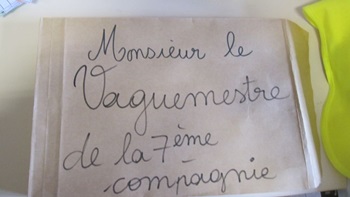 Monsieur le
Vaguemestre
de la 7ème
compagnie